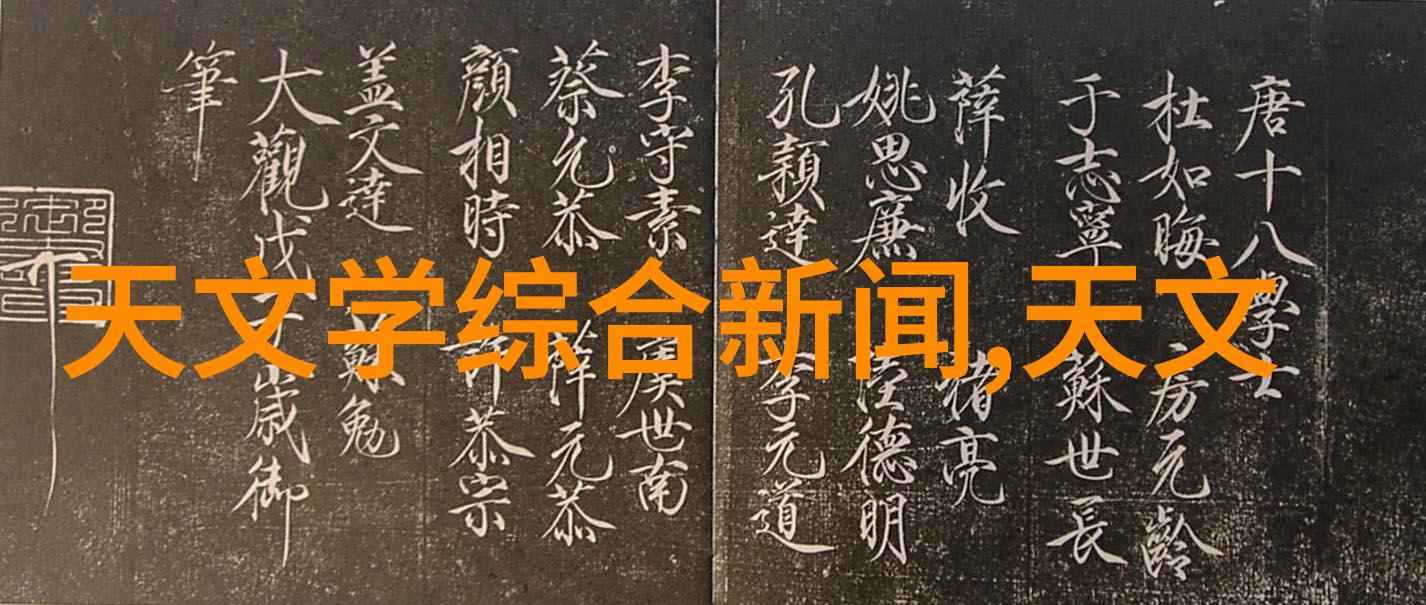 天文学综合新闻,天文
唐十八學士
杜如晦 房元齡
于志寧 蘇世長
薛收 褚亮
姚思廉 陸德明
孔穎達 李元道
李守素 虞世南
蔡允恭 薛元恭
顏相時 許恭宗
盖文達 蘇勉
大觀戊子歲御
筆